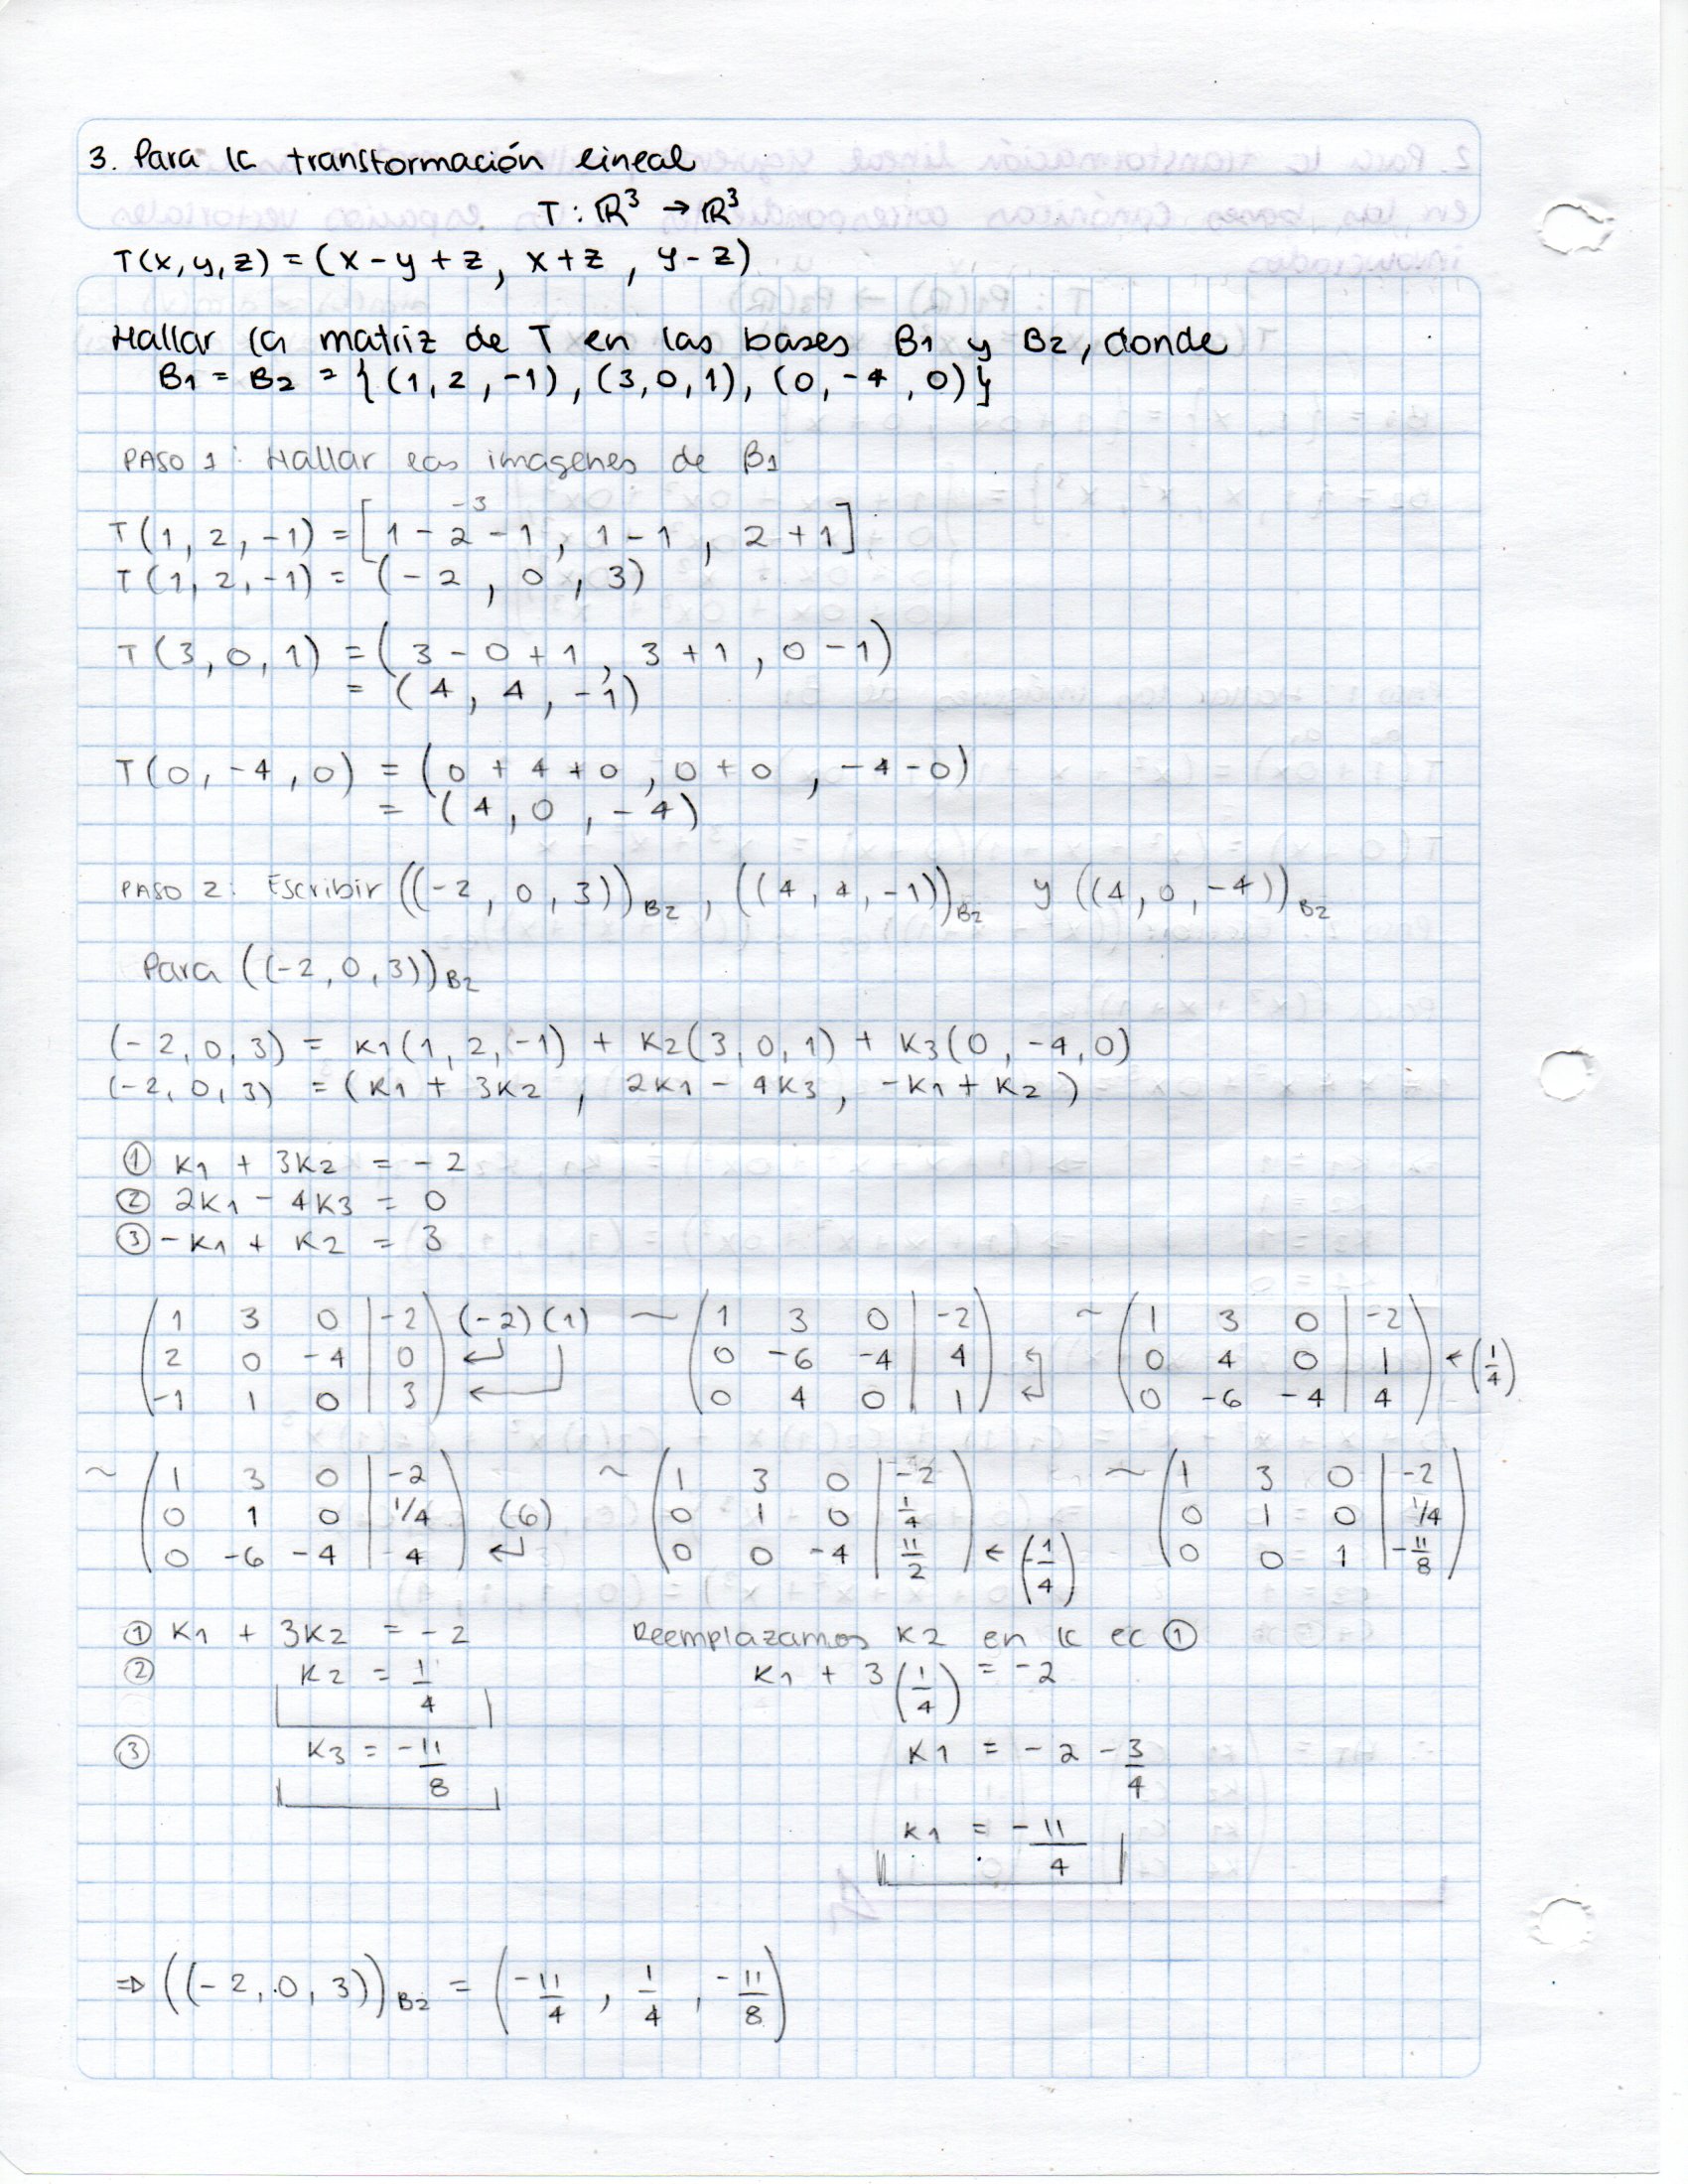 3. Para la transformación lineal
T : ℝ³ → ℝ³
T(x, y, z) = (x - y + z, x + z, y - z)
Hallar la matriz de T en las bases B1 y B2, donde
B1 = B2 = {(1, 2, -1), (3, 0, 1), (0, -4, 0)}
PASO 1: Hallar las imagenes de B1
-3
T(1, 2, -1) = [1 - 2 - 1, 1 - 1, 2 + 1]
T(1, 2, -1) = (-2, 0, 3)
T(3, 0, 1) = (3 - 0 + 1, 3 + 1, 0 - 1)
= (4, 4, -1)
T(0, -4, 0) = (0 + 4 + 0, 0 + 0, -4 - 0)
= (4, 0, -4)
PASO 2: Escribir ((-2, 0, 3))B2, ((4, 4, -1))B2 y ((4, 0, -4))B2
Para ((-2, 0, 3))B2
(-2, 0, 3) = K1(1, 2, -1) + K2(3, 0, 1) + K3(0, -4, 0)
(-2, 0, 3) = (K1 + 3K2, 2K1 - 4K3, -K1 + K2)
① K1 + 3K2 = -2
② 2K1 - 4K3 = 0
③ -K1 + K2 = 3
( 1 3 0 | -2 ) (-2) (1) ~ ( 1 3 0 | -2 ) ~ ( 1 3 0 | -2 )
( 2 0 -4 | 0 ) ↵ ( 0 -6 -4 | 4 ) ( 0 4 0 | 1 ) ← (1/4)
( -1 1 0 | 3 ) ↵ ( 0 4 0 | 1 ) ↵ ( 0 -6 -4 | 4 )
~ ( 1 3 0 | -2 ) ~ ( 1 3 0 | -2 ) ~ ( 1 3 0 | -2 )
( 0 1 0 | 1/4 ) (6) ( 0 1 0 | 1/4 ) ( 0 1 0 | 1/4 )
( 0 -6 -4 | 4 ) ↵ ( 0 0 -4 | 11/2 ) ← (-1/4) ( 0 0 1 | -11/8 )
① K1 + 3K2 = -2 Reemplazamos K2 en la ec ①
② K2 = 1/4 K1 + 3(1/4) = -2
③ K3 = -11/8 K1 = -2 - 3/4
K1 = -11/4
⇒ ((-2, 0, 3))B2 = (-11/4, 1/4, -11/8)